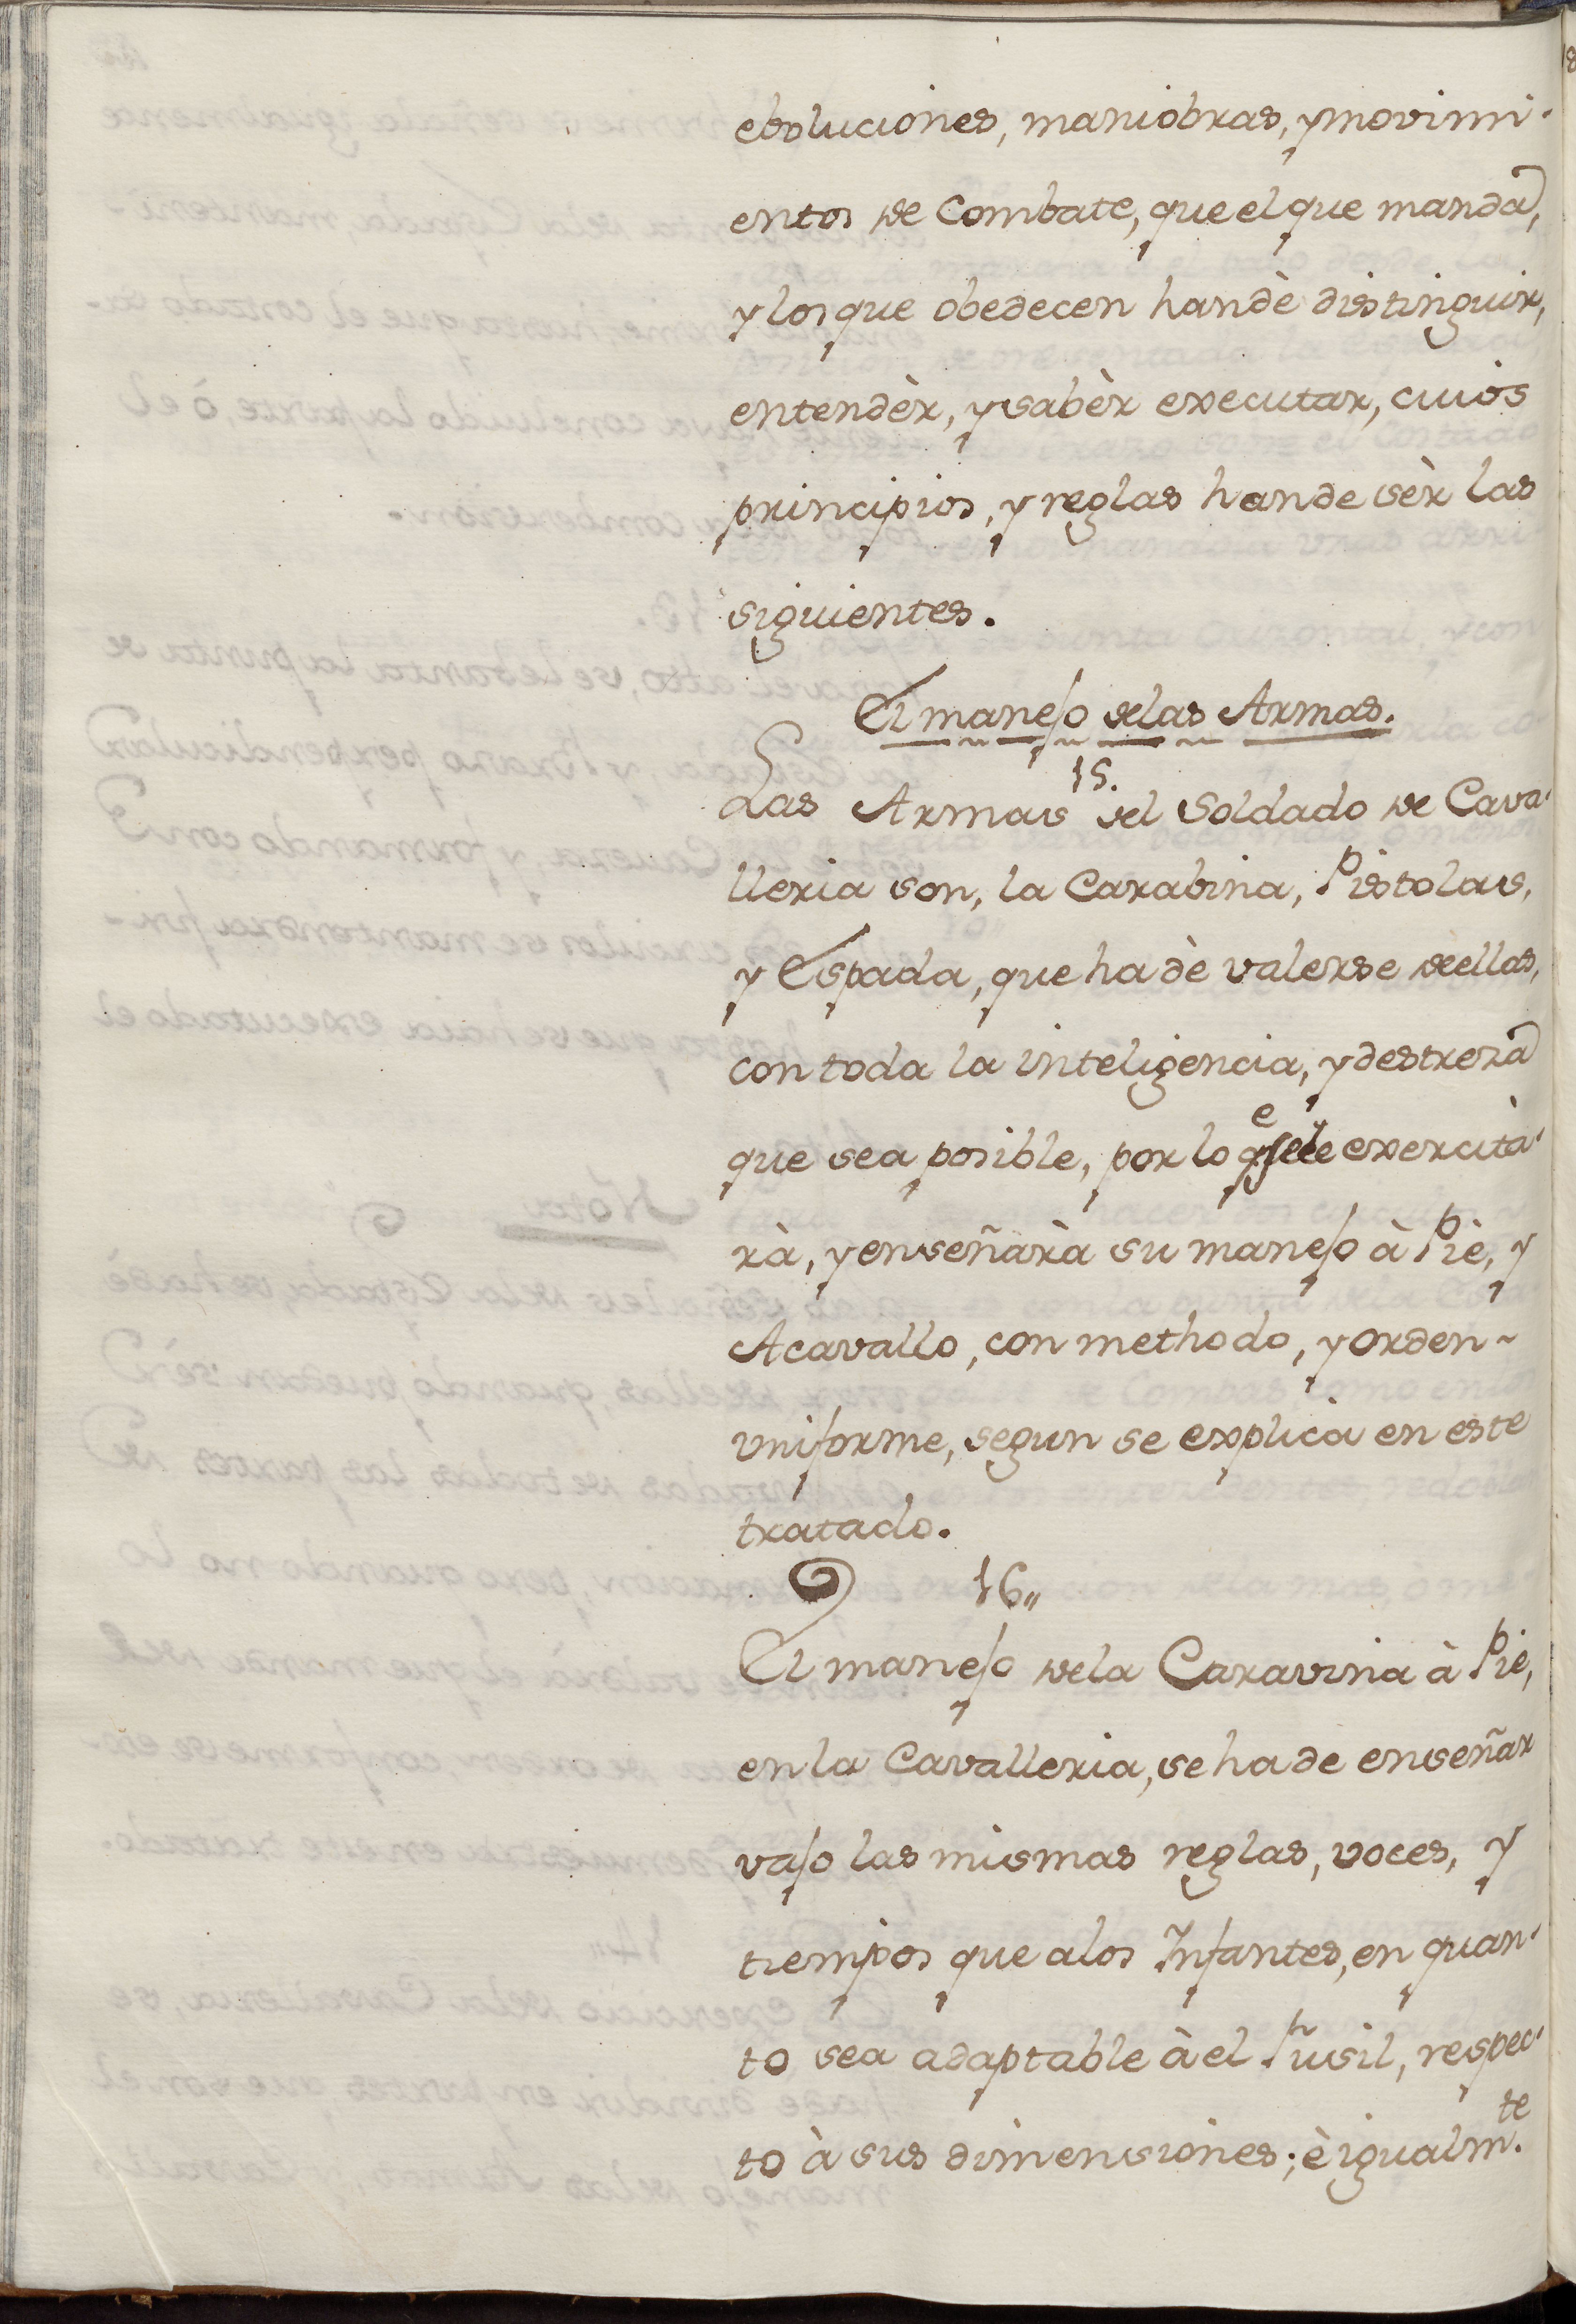 eboluciones, maniobras, y movimi-
entos de Combate, que el que manda,
y los que obedecen han dè distinguir,
entendèr, y sabèr executar, cuios
principios, y reglas han de sèr las
siguientes.
El manejo de las Armas.
15.
Las Armas del Soldado de Cava-
lleria son, la Carabina, Pistolas,
y Espada, que ha dè valerse de ellas,
con toda la inteligencia, y destreza
que sea posible, por lo qe se le exercita-
rà, y enseñarà su manejo à Piè, y
A cavallo, con methodo, y orden
uniforme, segun se explica en este
tratado.
16,,
El manejo de la Caravina à Pie,
en la Cavalleria, se ha de enseñar
vajo las mismas reglas, voces, y
tiempos que a los Infantes, en quan-
to sea adaptable à el Fusil, respec-
to à sus dimensiones; è igualmte.